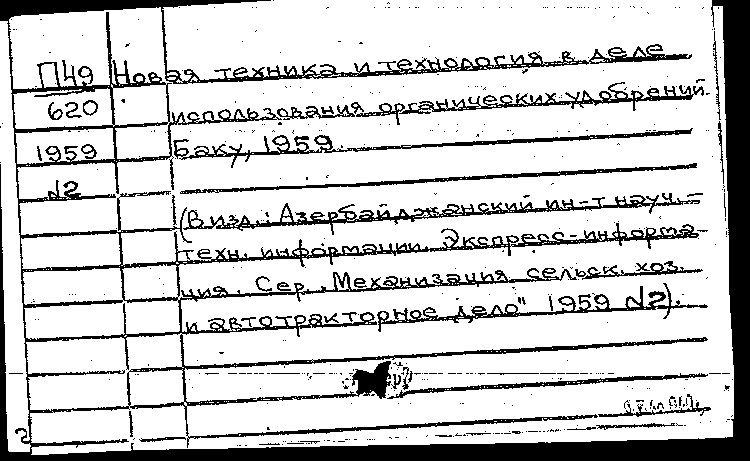 П49 Новая техника и технология в деле
620 использования органических удобрений.
1959 Баку, 1959.
№2
(В изд.: Азербайджанский ин-т науч.-
техн. информации. Экспресс-информа-
ция. Сер. „Механизация сельск. хоз.
и автотракторное дело" 1959 №2).
2